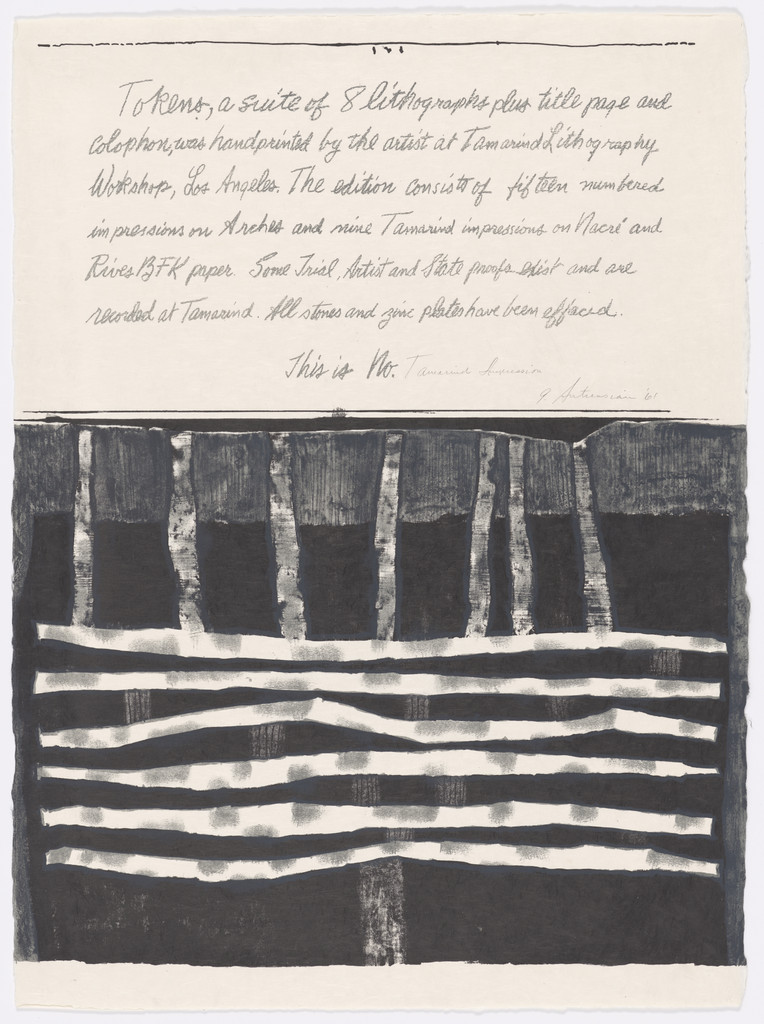 Tokens, a suite of 8 lithographs plus title page and
colophon, was handprinted by the artist at Tamarind Lithography
Workshop, Los Angeles. The edition consists of fifteen numbered
impressions on Arches and nine Tamarind impressions on Nacré and
Rives BFK paper. Some Trial, Artist and State proofs exist and are
recorded at Tamarind. All stones and zinc plates have been effaced.
This is No. Tamarind Impression
G Antreasian '61